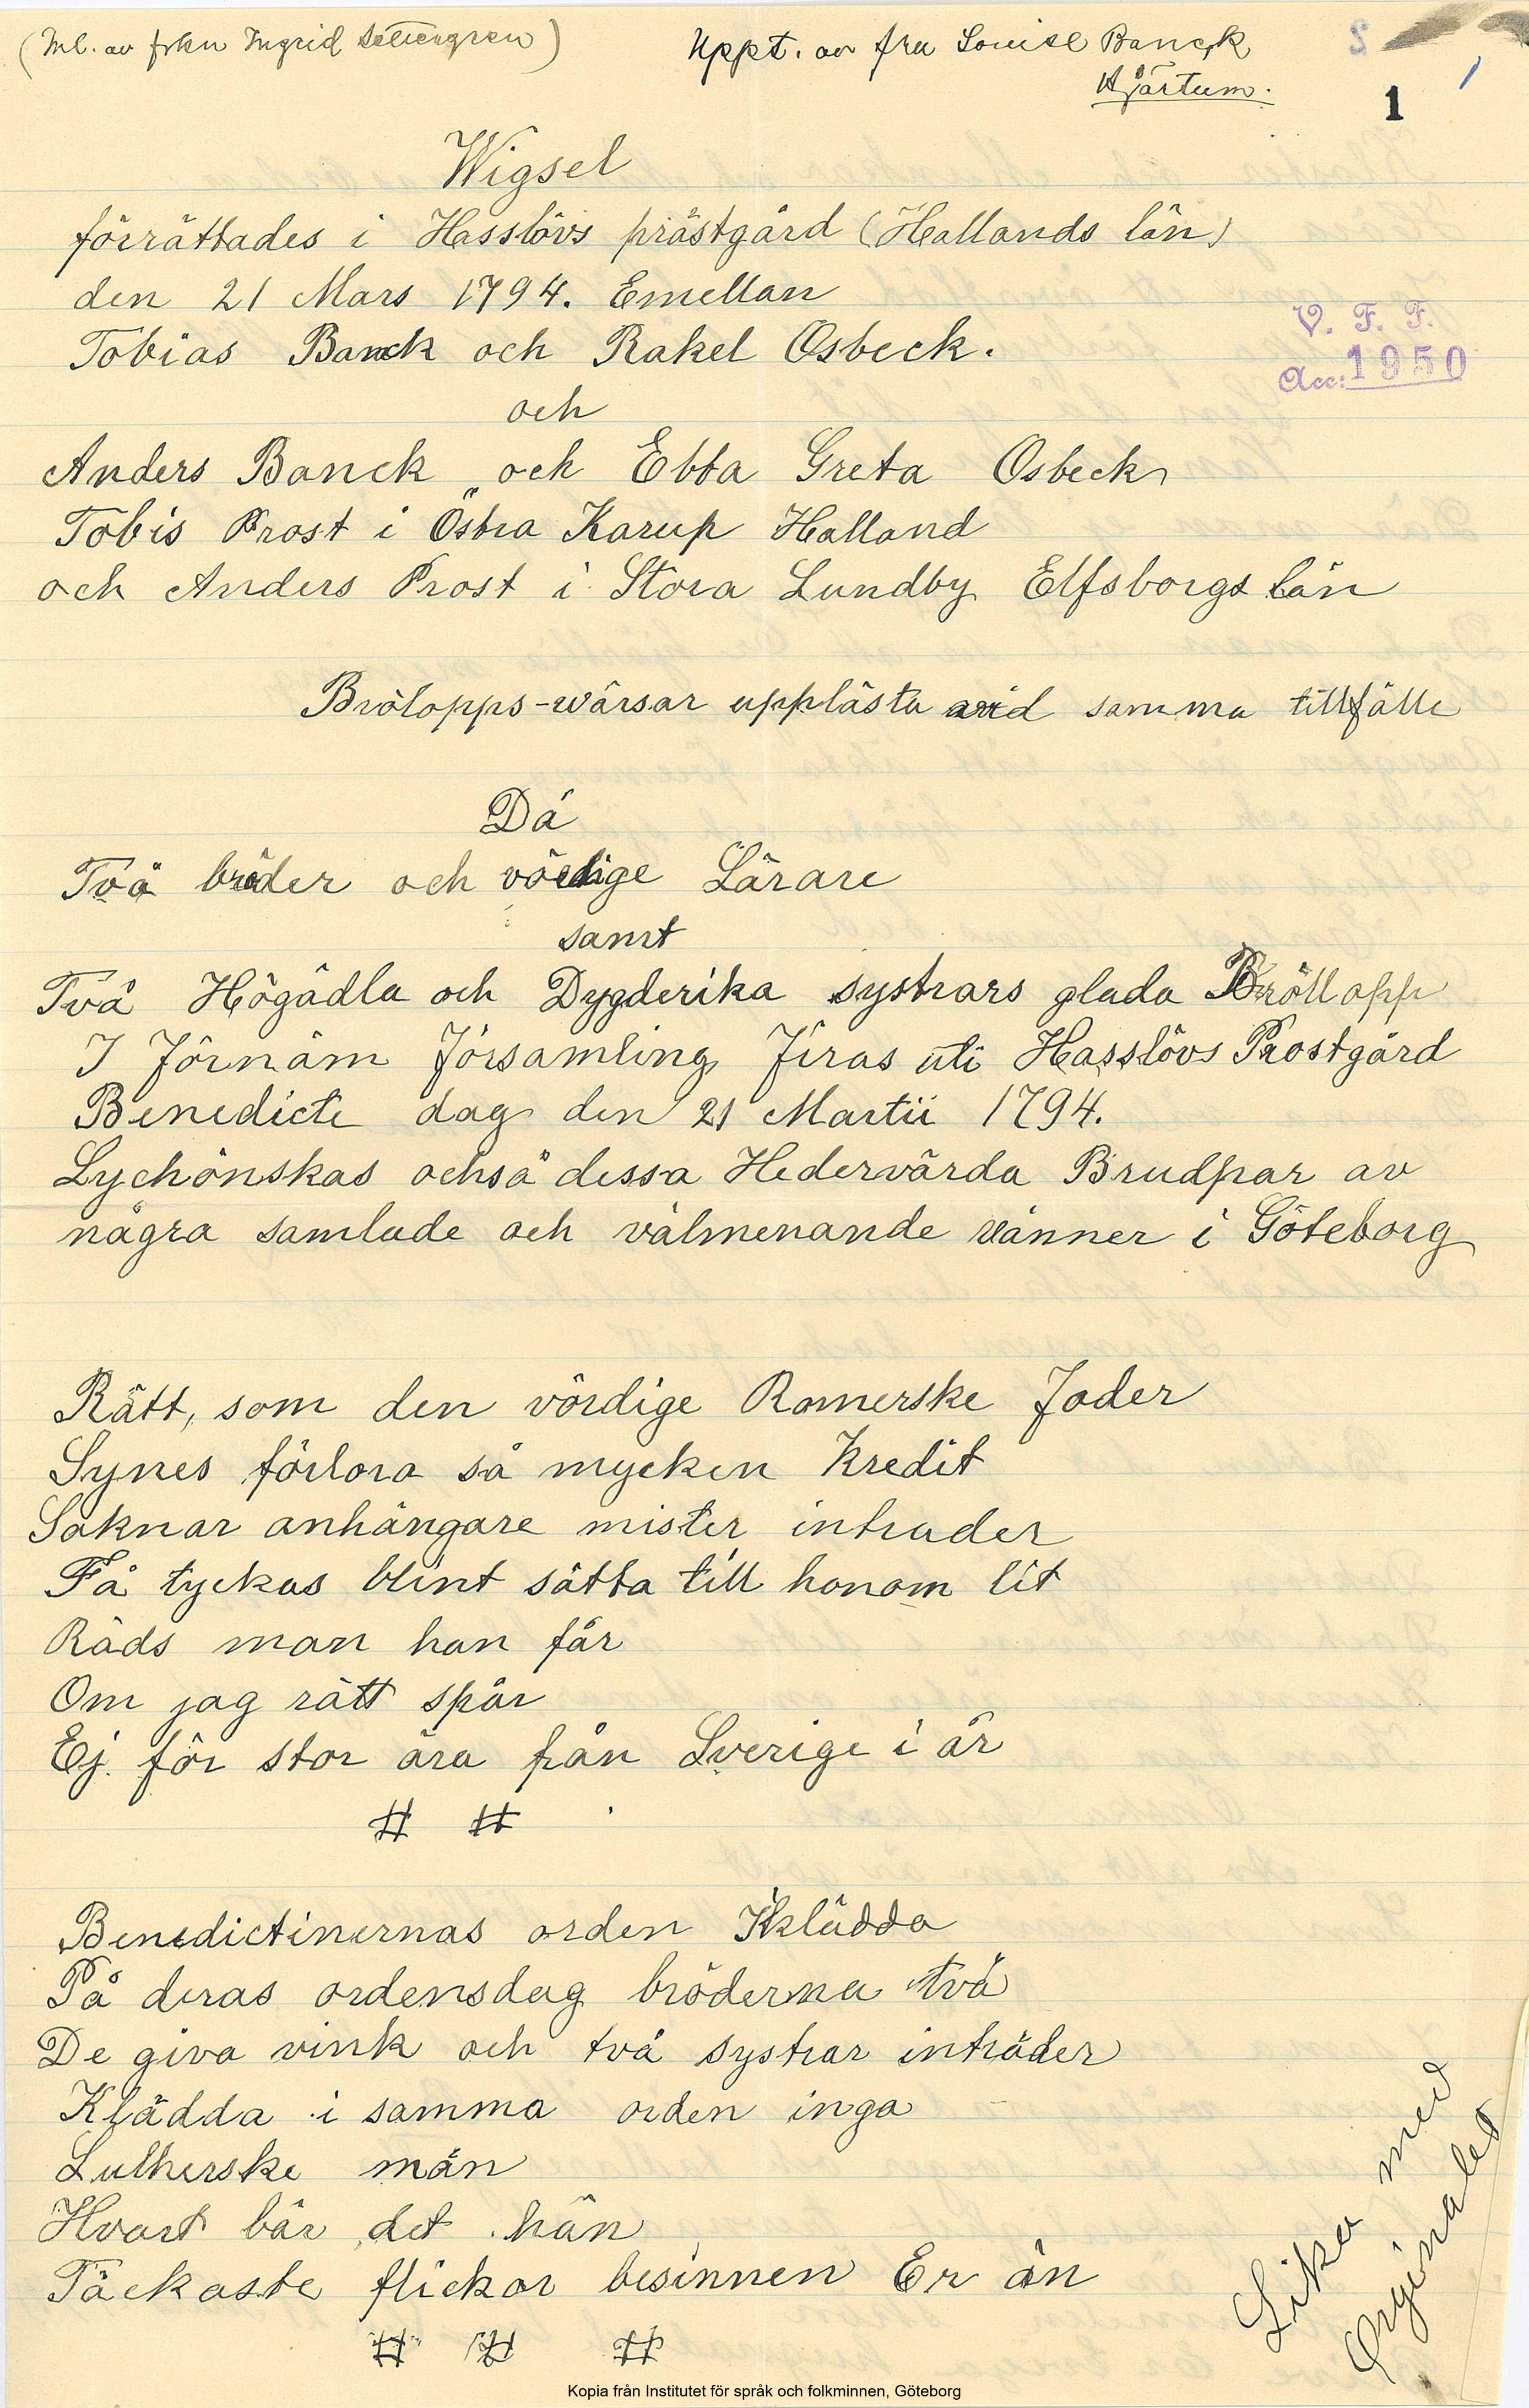 (Ml. av frkn Ingrid Settergren)
Uppt. av fru Louise Banck
Hjärtum.
1
Wigsel
förrättades i Hasslövs prästgård (Hallands län)
den 21 Mars 1794. Emellan
Tobias Banck och Rakel Osbeck.
V. F. F.
Acc: 1950
och
Anders Banck och Ebba Greta Osbeck
Tobis Prost i Östra Karup Halland
och Anders Prost i Stora Lundby Elfsborgs län
Brölopps-wärsar upplästa vid samma tillfälle
Då
Två bröder och vördige Lärare
samt
Två Högädla och Dygderika systrars glada Bröllopp
I Förnäm Församling Firas uti Hasslövs Prostgård
Benedicti dag den 21 Martii 1794.
Lychönskas också dessa Hedervärda Brudpar av
några samlade och välmenande vänner i Göteborg
Rätt, som den vördige Romerske Fader
Synes förlora så mycken Kredit
Saknar anhängare mister intrader
Få tyckas blint sätta till honom lit
Råds man han får
Om jag rätt spår
Ej för stor ära från Sverige i år
# #
Benedictinernas orden Iklädda
På deras ordensdag bröderna två
De giva vink och två systrar inträder
Klädda i samma orden inga
Lutherske män
Hvart bär det hän
Täckaste flickor besinnen Er än
# # #
Lika med
Orginalet
Kopia från Institutet för språk och folkminnen, Göteborg